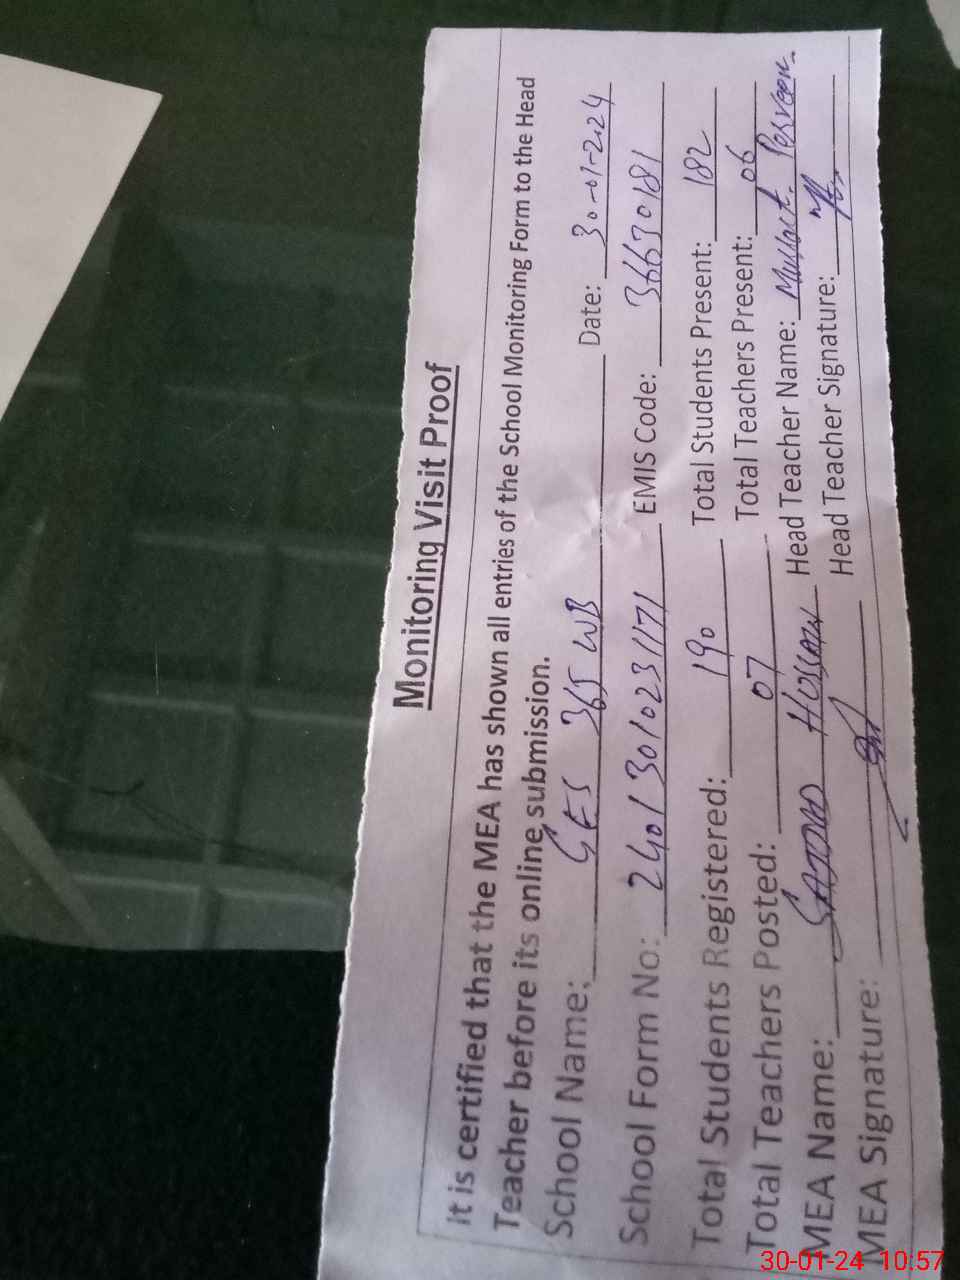 Monitoring Visit Proof
It is certified that the MEA has shown all entries of the School Monitoring Form to the Head
Teacher before its online submission.
School Name: GES 365 WB Date: 30-01-2024
School Form No: 24013010231171 EMIS Code: 36630181
Total Students Registered: 190 Total Students Present: 182
Total Teachers Posted: 07 Total Teachers Present: 06
MEA Name: SAJJAD HUSSAIN Head Teacher Name: Musarat Perveen
MEA Signature: Head Teacher Signature:
30-01-24 10:57